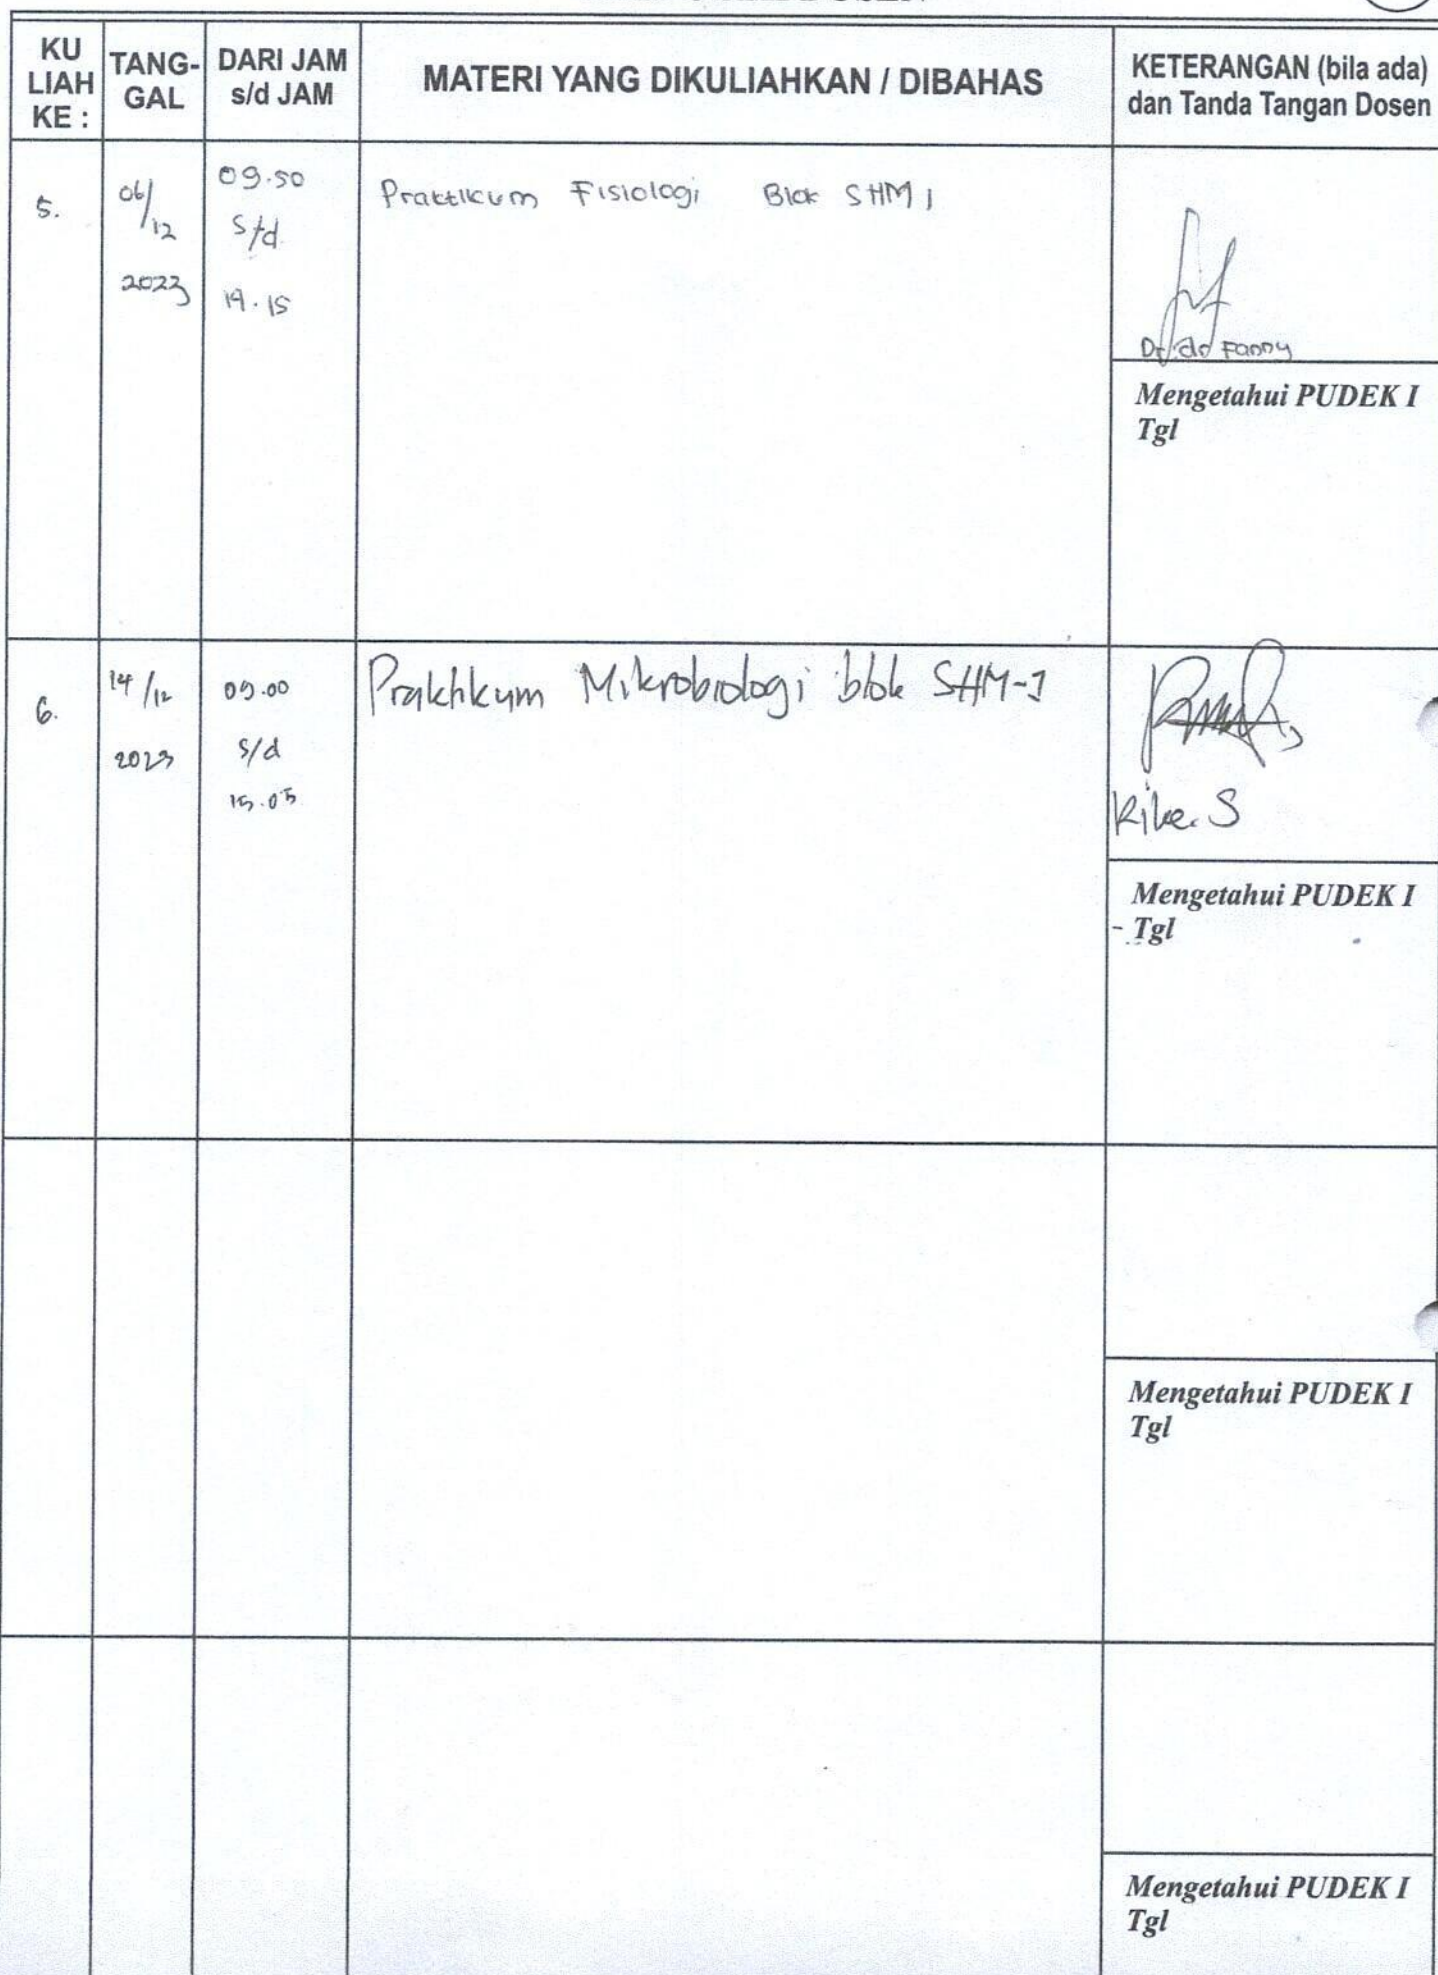 KU
LIAH
KE :
TANG-
GAL
DARI JAM
s/d JAM
MATERI YANG DIKULIAHKAN / DIBAHAS
KETERANGAN (bila ada)
dan Tanda Tangan Dosen
5.
06/12
2023
09.50
s/d
14.15
Praktikum Fisiologi Blok SHM 1
Fanny
Mengetahui PUDEK I
Tgl
6.
14/12
2023
09.00
s/d
15.05
Praktikum Mikrobiologi blok SHM-1
Rike. S
Mengetahui PUDEK I
Tgl
Mengetahui PUDEK I
Tgl
Mengetahui PUDEK I
Tgl